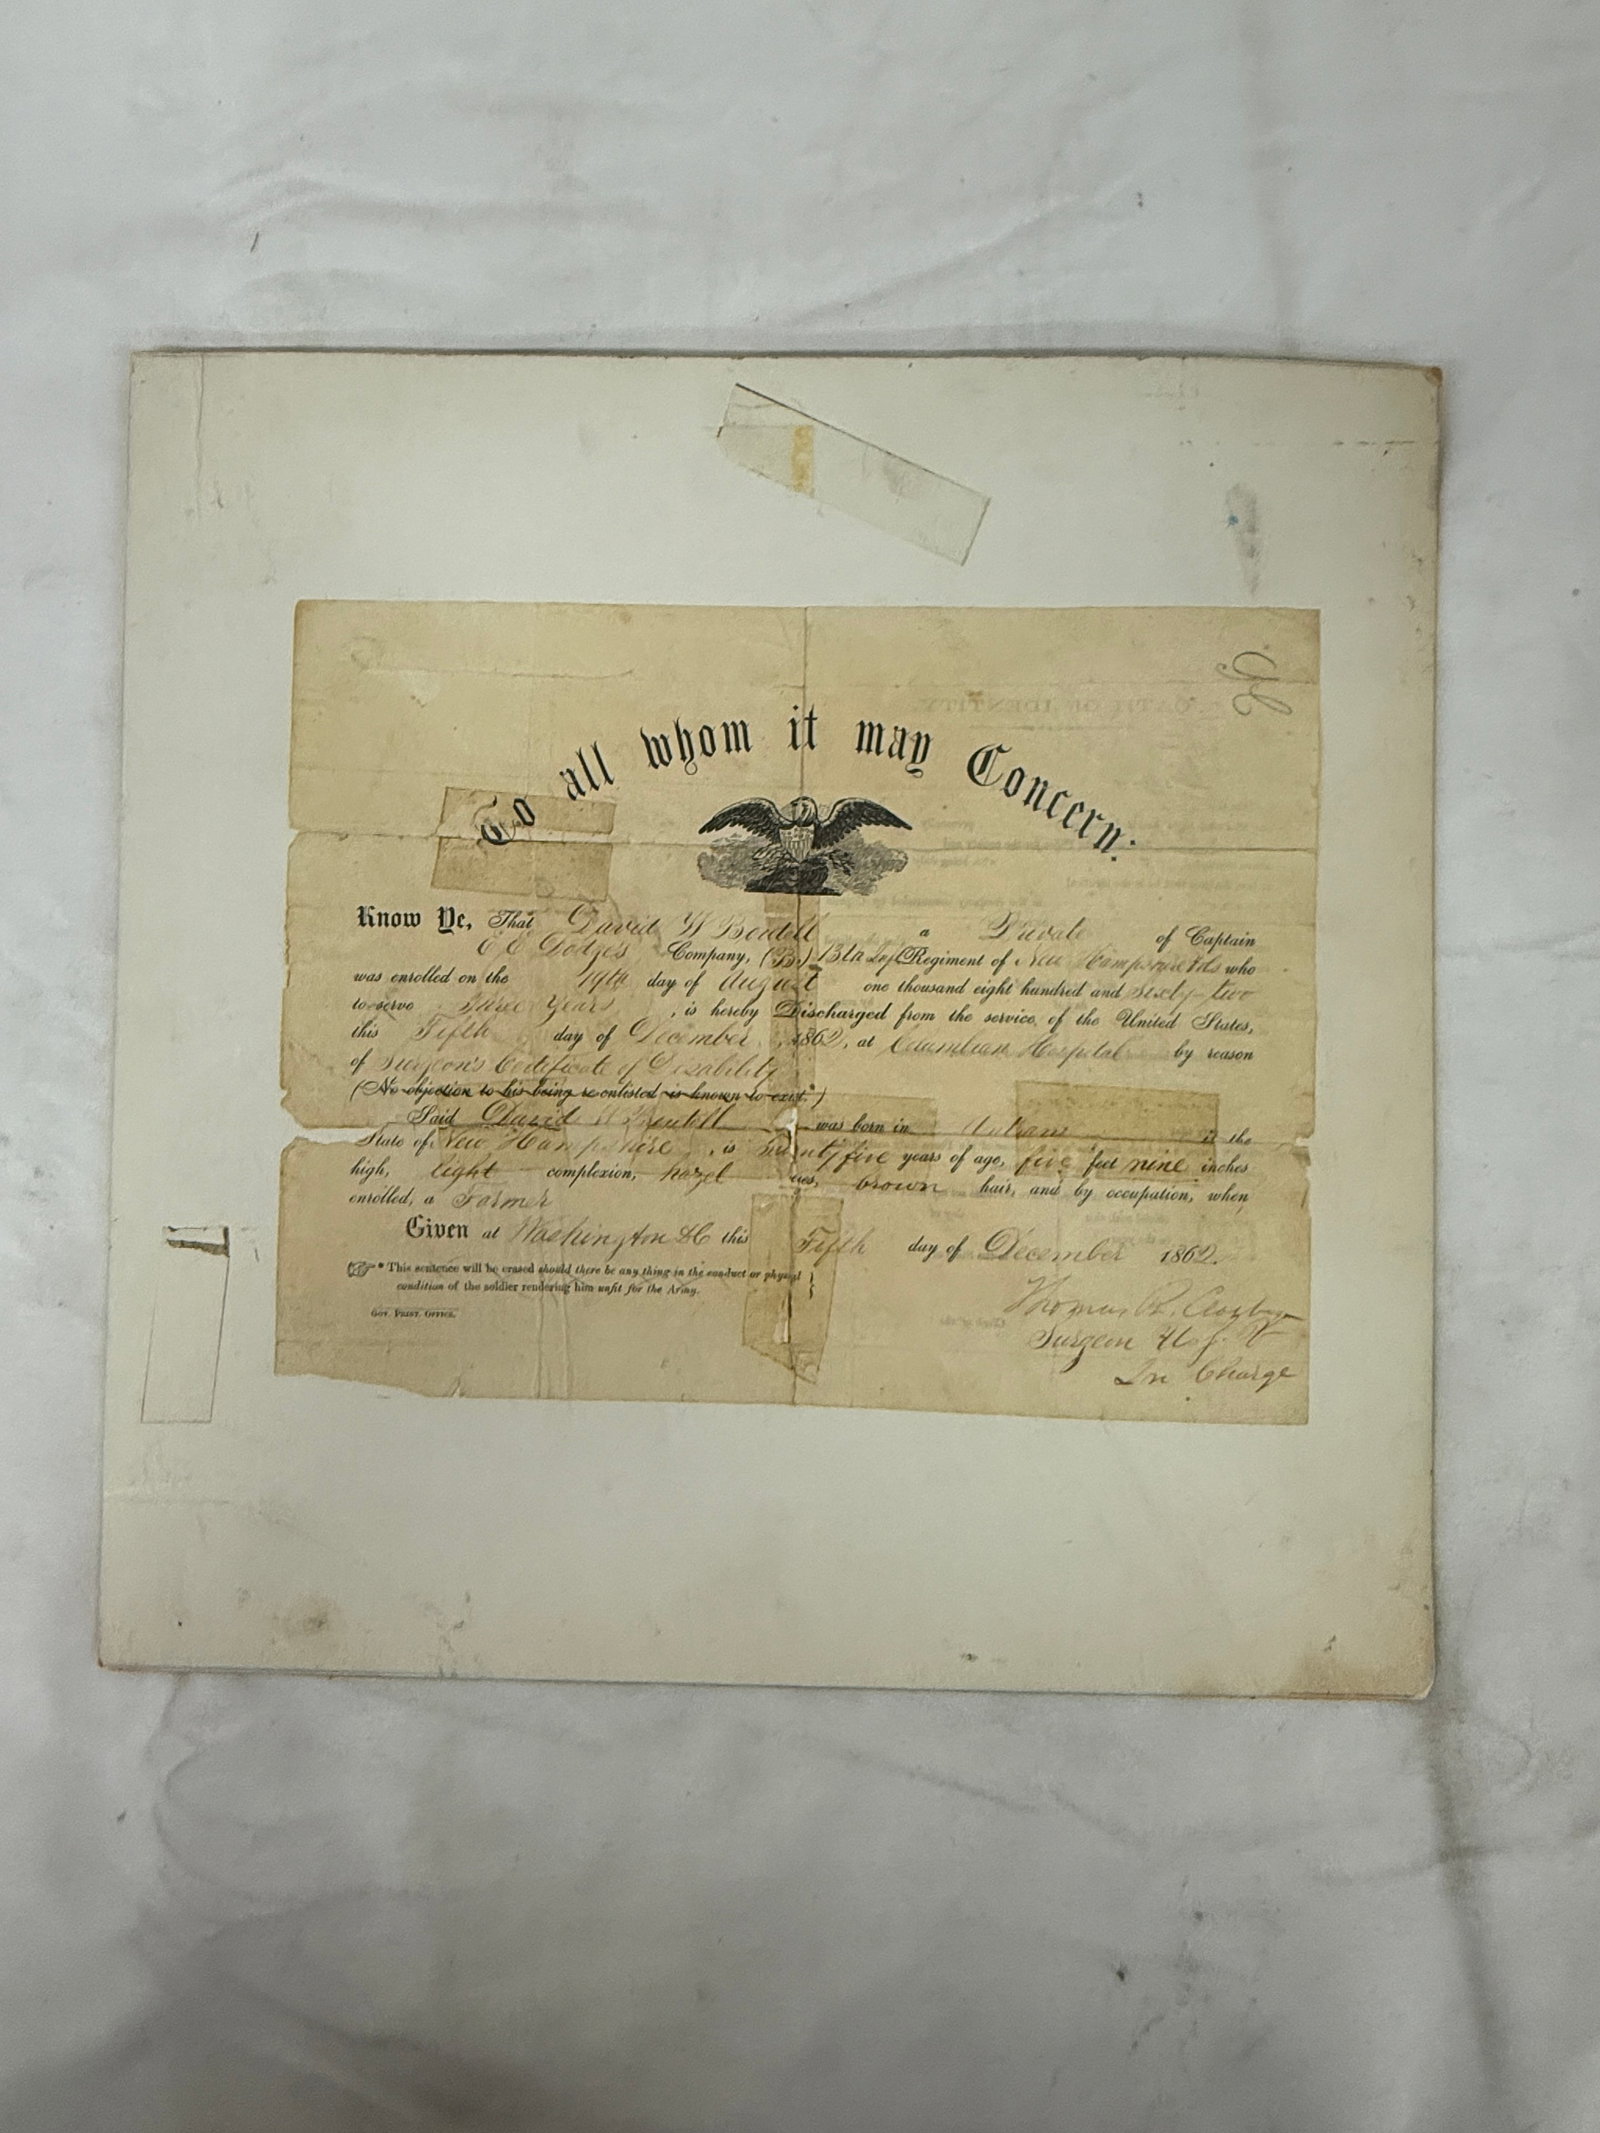 To all whom it may Concern:
Know Ye, That David W a Private of Captain
E E Dodge's Company, (B.) 13th Regiment of New Hampshire Vols who
was enrolled on the 19th day of August one thousand eight hundred and sixty-two
to serve Three Years, is hereby Discharged from the service of the United States,
this Fifth day of December, 1862, at Columbian Hospital by reason
of Surgeon's Certificate of Disability
(No objection to his being re-enlisted is known to exist.*)
Said David W was born in in the
State of New Hampshire, is twenty five years of age, five feet nine inches
high, light complexion, hazel eyes, brown hair, and by occupation, when
enrolled, a Farmer
Given at Washington DC this Fifth day of December 1862.
* This sentence will be erased should there be any thing in the conduct or physical
condition of the soldier rendering him unfit for the Army.
Gov. Print. Office.
Thomas R.
Surgeon
In Charge
OATH OF IDENTITY.